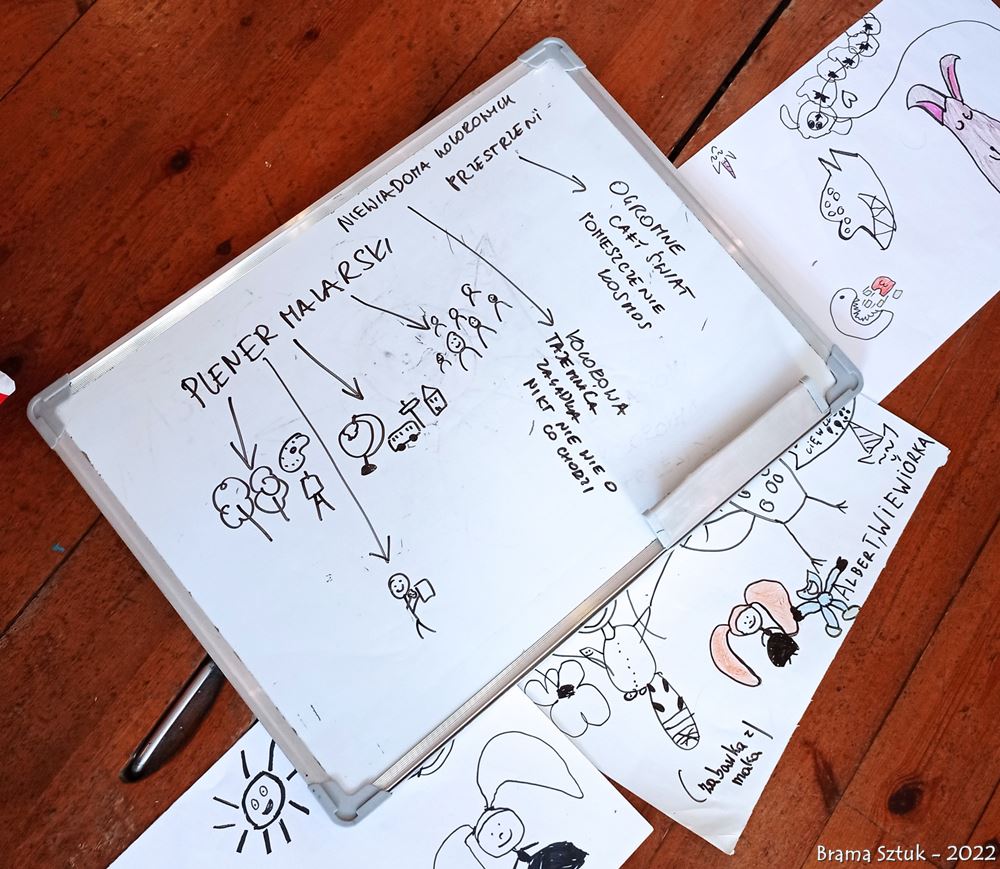 NIEWIADOMA KOLOROWYCH
PRZESTRZENI
PLENER MALARSKI
OGROMNE
CAŁY ŚWIAT
POMIESZCZENIE
KOSMOS
KOLOROWA
TAJEMNICA
ZAGADKA
NIKT NIE WIE O
CO CHODZI
ALBERT, WIEWIÓRKA
(zabawka z
maka)
Brama Sztuk - 2022